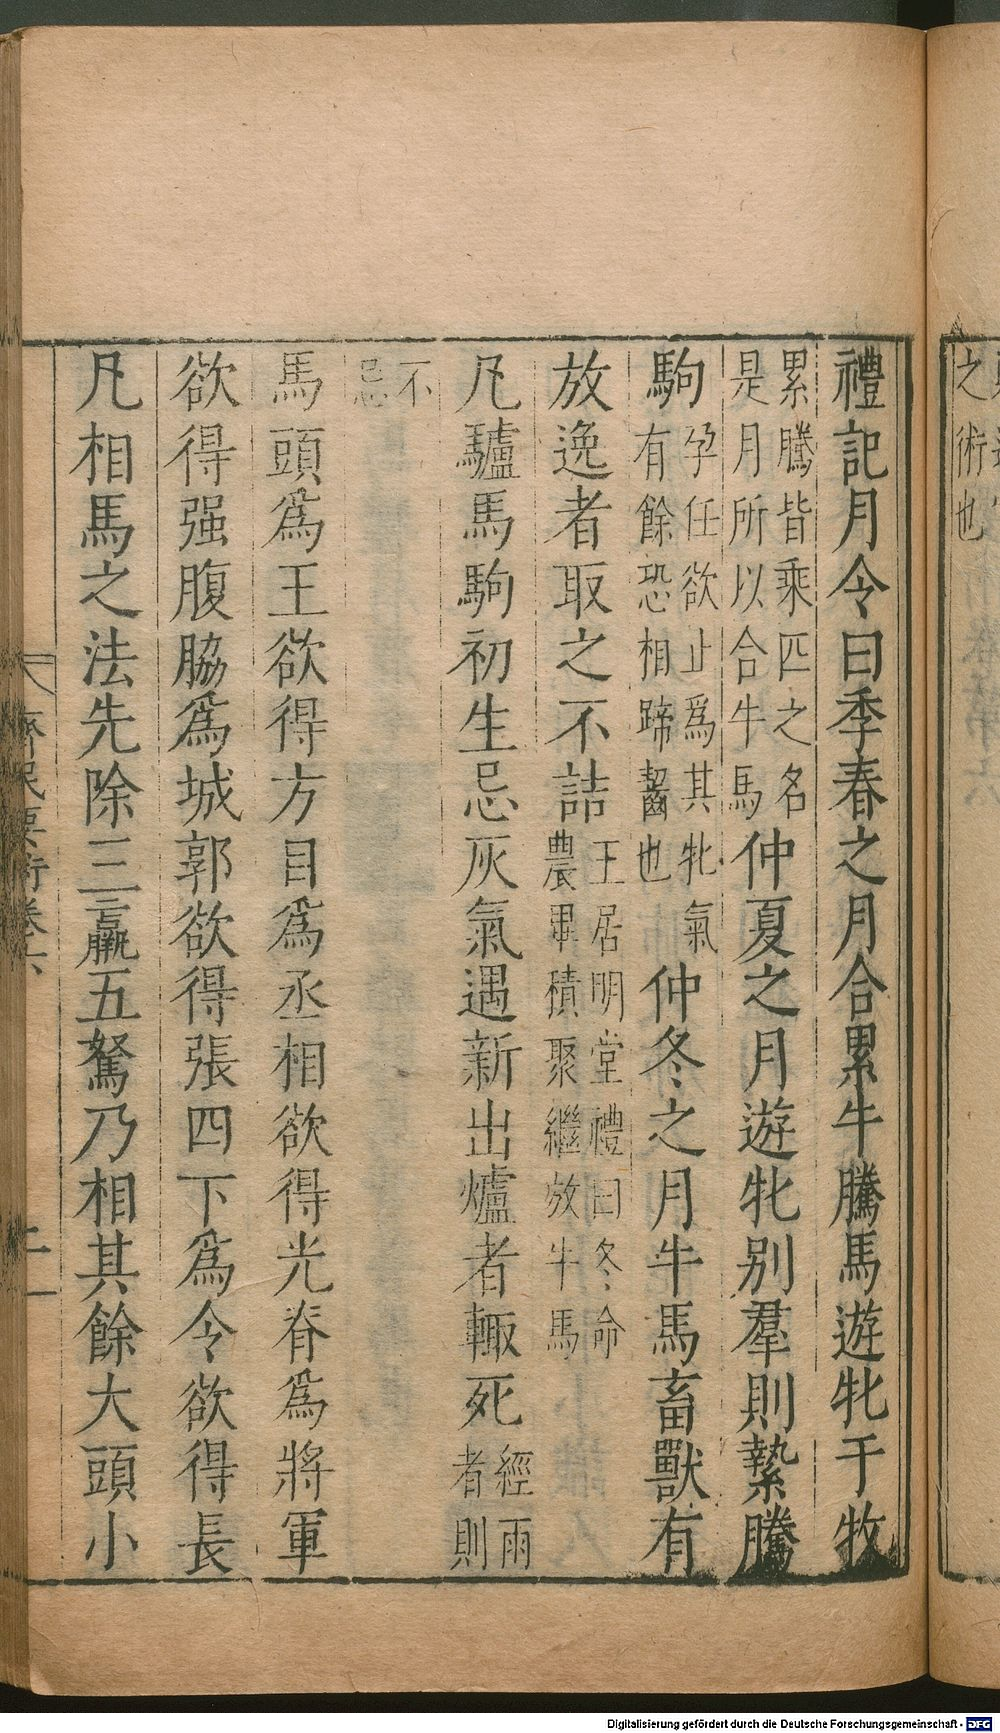 之術也
禮記月令曰季春之月合累牛騰馬遊牝于牧
累騰皆乘匹之名是月所以合牛馬仲夏之月遊牝別羣則縶騰
駒孕任欲止爲其牝氣有餘恐相蹄齧也仲冬之月牛馬畜獸有
放逸者取之不詰王居明堂禮曰冬命農畢積聚繼放牛馬
凡驢馬駒初生忌灰氣遇新出爐者輙死經雨者則
不忌
馬頭爲王欲得方目爲丞相欲得光脊爲將軍
欲得强腹脇爲城郭欲得張四下爲令欲得長
凡相馬之法先除三羸五駑乃相其餘大頭小
齊民要術卷六
Digitalisierung gefördert durch die Deutsche Forschungsgemeinschaft - DFG